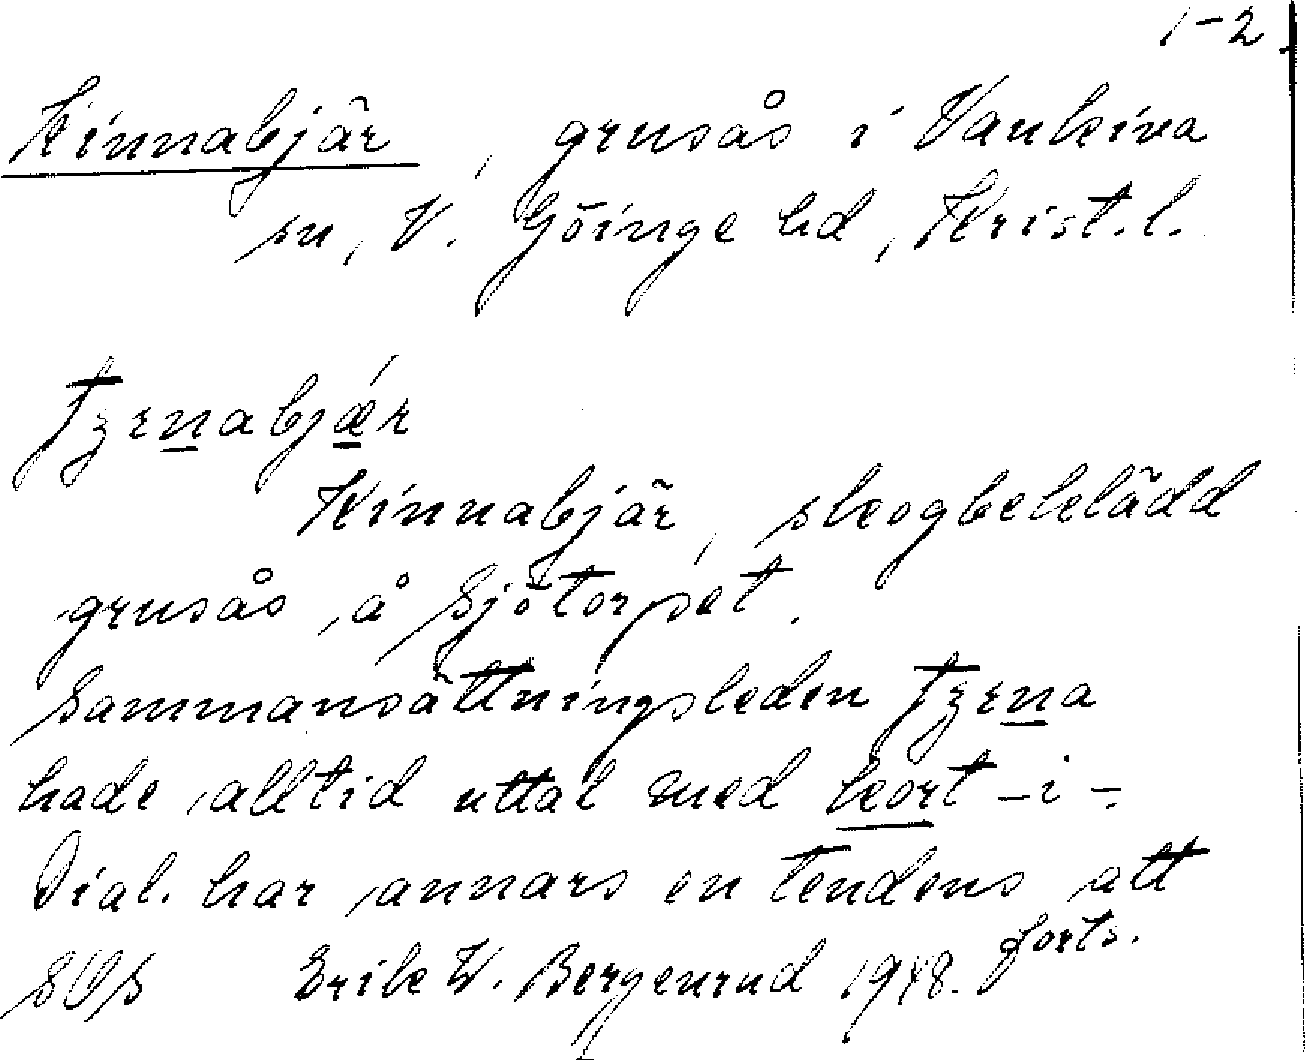 1-2.
Kinnabjär, grusås i Vankiva
sn, V. Göinge hd, Krist.l.
Kinnabjär, skogbeklädd
grusås å Sjötorpet.
Sammansättningsleden
hade alltid uttal med kort -i-.
Dial. har annars en tendens att
forts.
SOS Erik W. Bergenrud 1948.